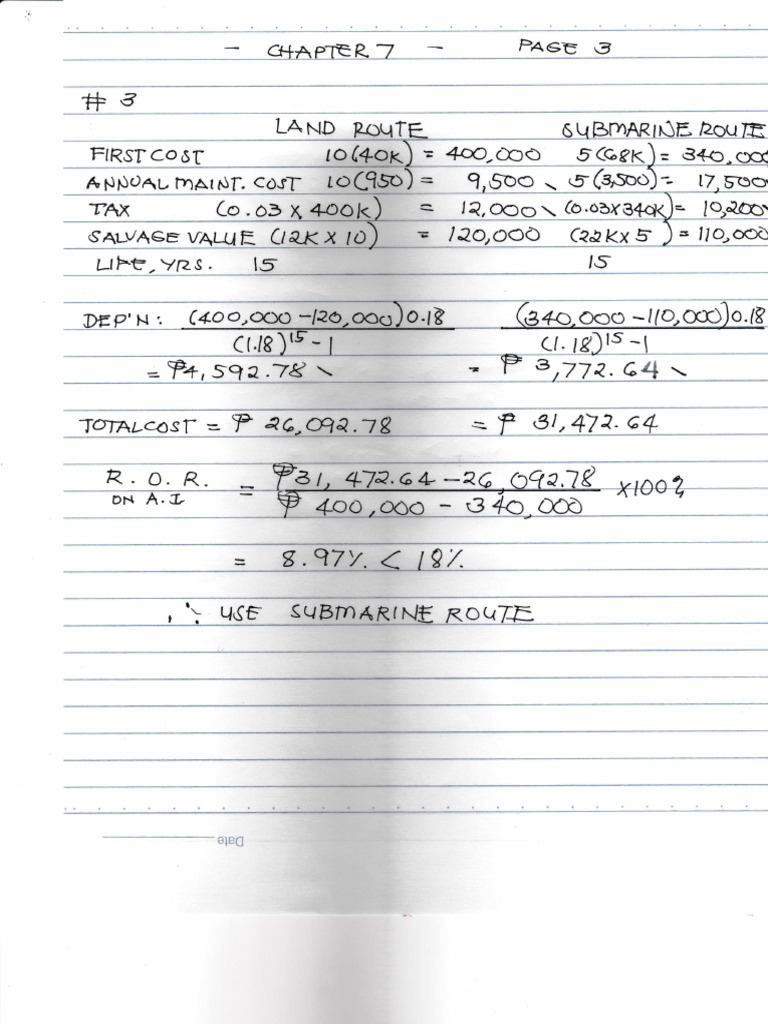 - CHAPTER 7 - PAGE 3
# 3
LAND ROUTE SUBMARINE ROUTE
FIRST COST 10(40K) = 400,000 5(68K) = 340,000
ANNUAL MAINT. COST 10(950) = 9,500 \ 5(3,500) = 17,500
TAX (0.03 X 400K) = 12,000 \ (0.03X340K) = 10,200
SALVAGE VALUE (12K X 10) = 120,000 (22K X 5) = 110,000
LIFE, YRS. 15 15
DEP'N: (400,000 - 120,000) 0.18 (340,000 - 110,000) 0.18
(1.18)15 - 1 (1.18)15 - 1
= ₱4,592.78 \ = ₱ 3,772.64 \
TOTAL COST = ₱ 26,092.78 = ₱ 31,472.64
R. O. R. = ₱31,472.64 - 26,092.78 X100%
ON A.I ₱ 400,000 - 340,000
= 8.97% < 18%
∴ USE SUBMARINE ROUTE
Date